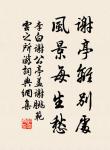 謝亭離別處
風景每生愁
李白謝公亭蓋謝脁范
雲之所游詞典網集